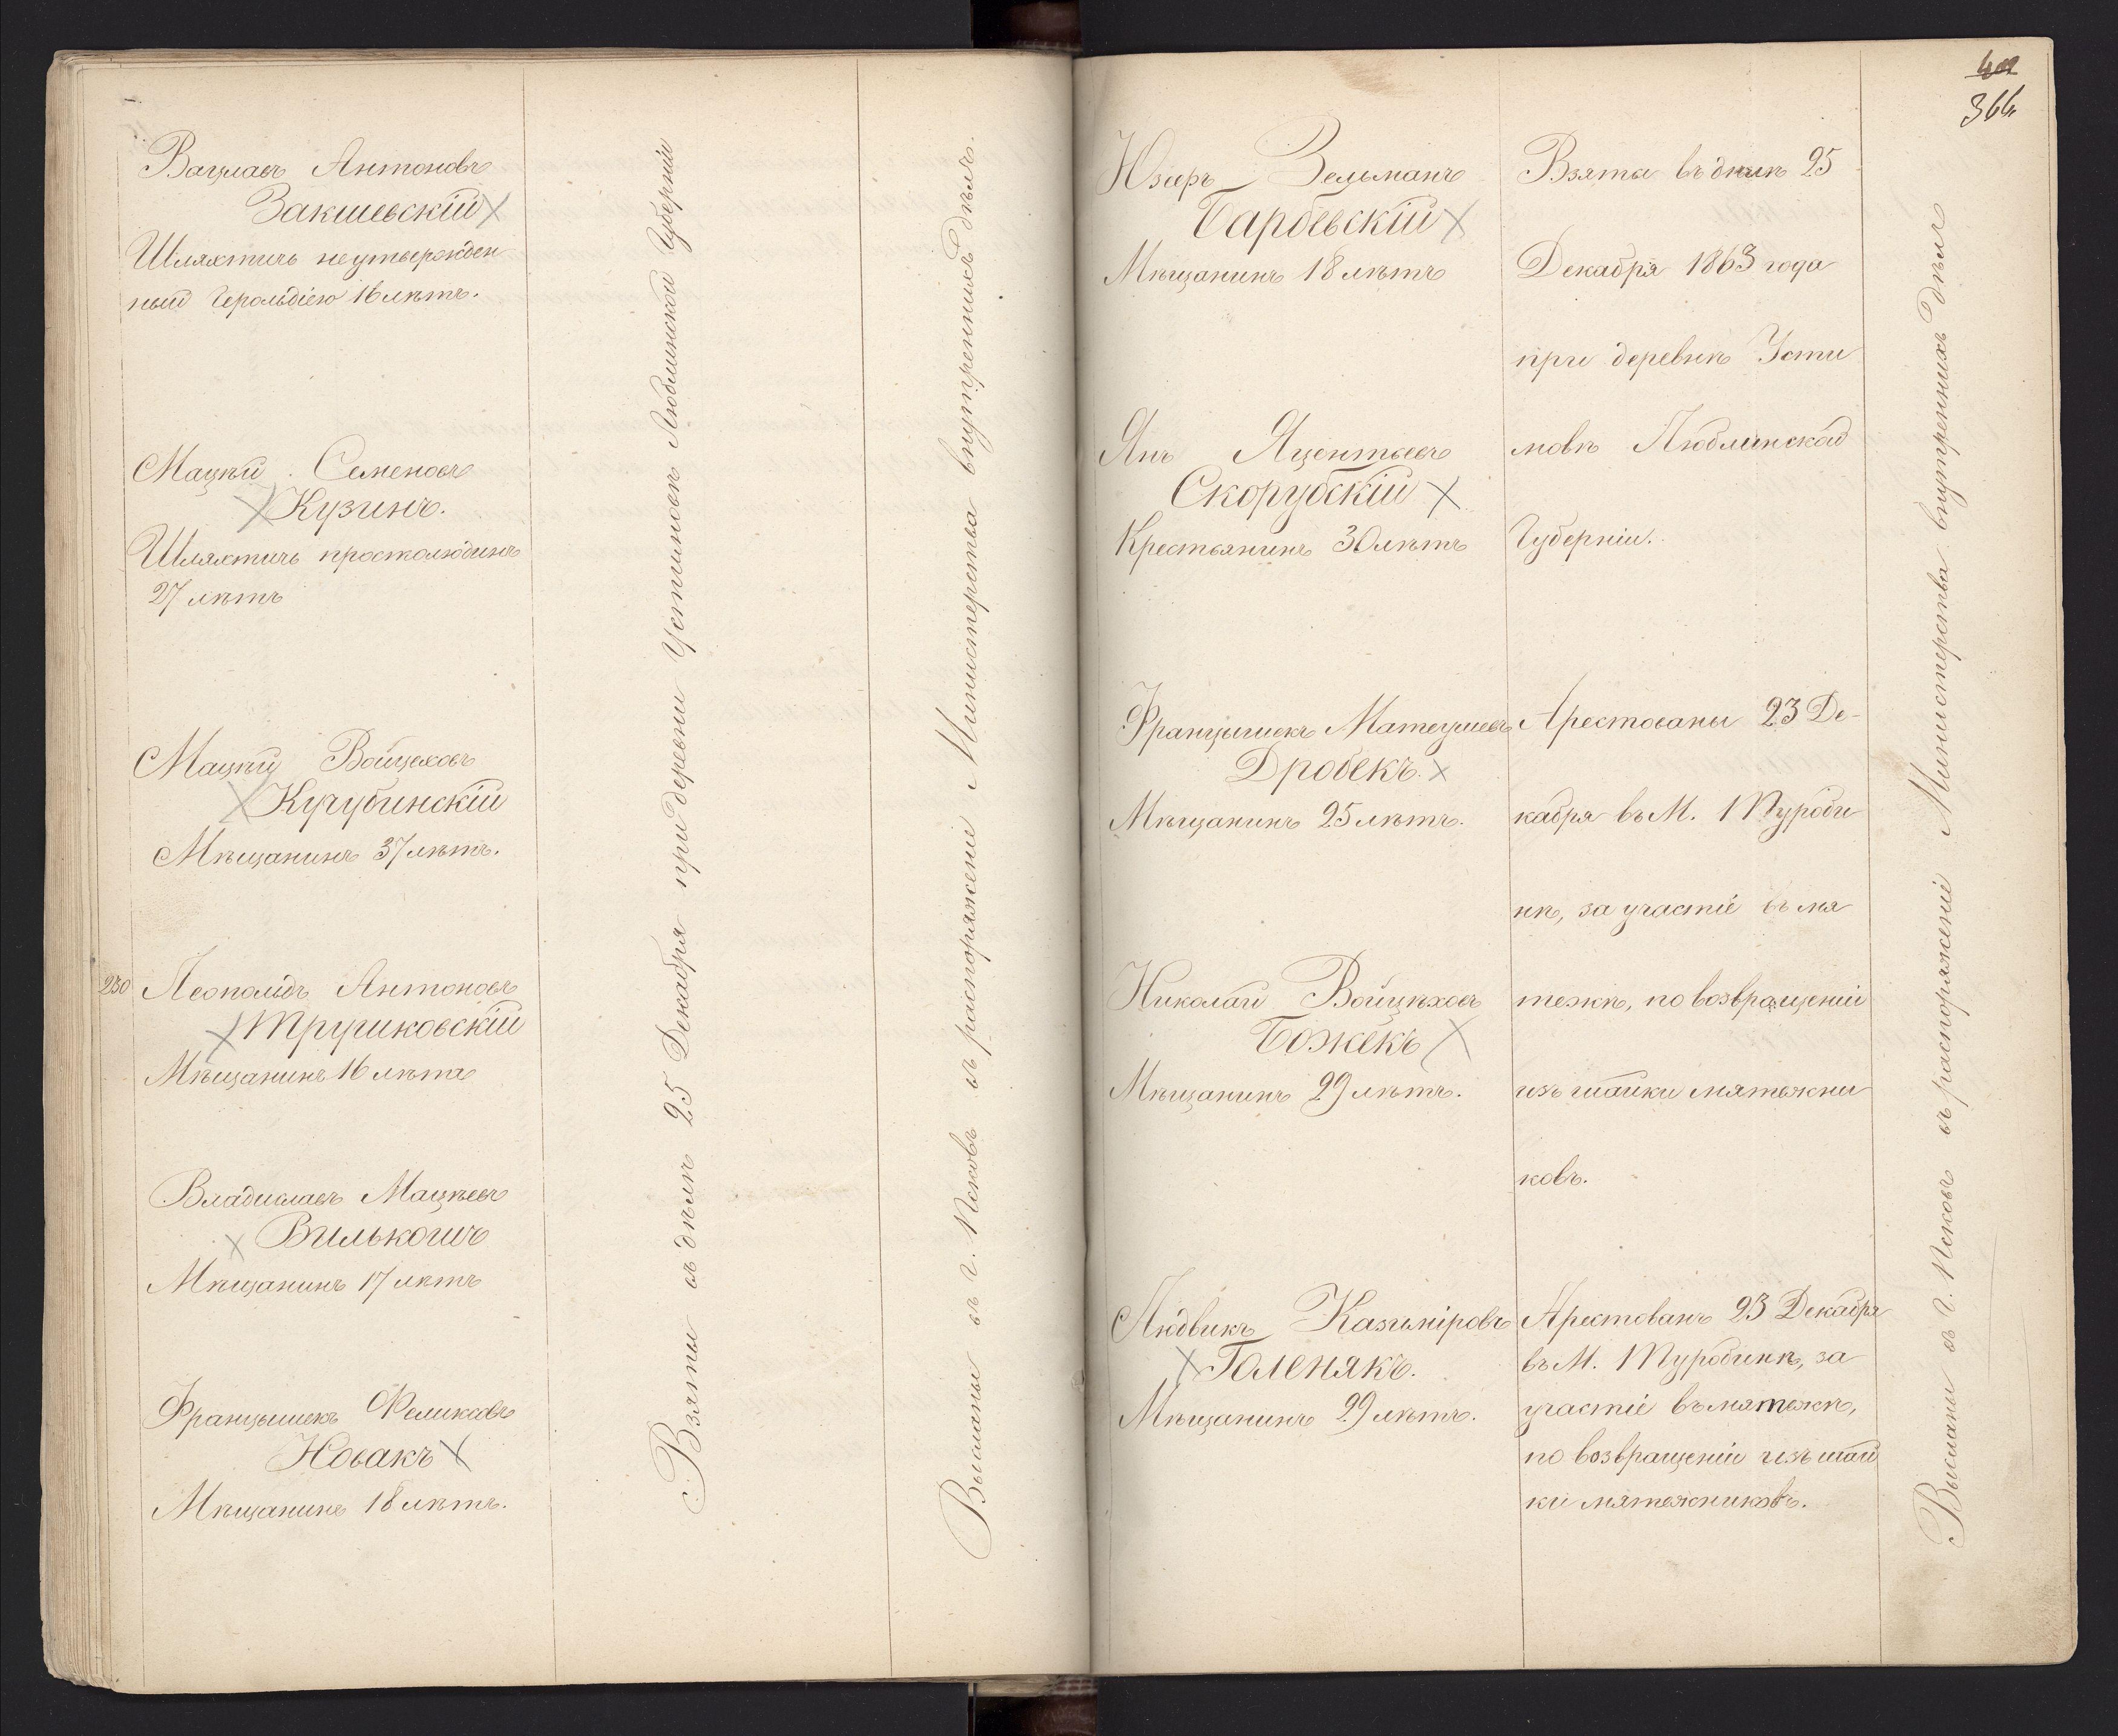 Вацлавъ Антоновъ
Закшевскій
Шляхтичь неутвержден
ный Герольдіею 16 лѣтъ.
Мацѣй Семеновъ
Кузинъ.
Шляхтичь простолюдинъ
27 лѣтъ
Мацѣй Войцеховъ
Кучубинскій
Мѣщанинъ 37 лѣтъ.
230 Леопольдъ Антоновъ
Мѣщанинъ 16 лѣтъ
Владиславъ Мацѣевъ
Вилькошъ
Мѣщанинъ 17 лѣтъ
Францышекъ Феликсовъ
Новакъ
Мѣщанинъ 18 лѣтъ.
Взяты въ дѣлѣ 25 Декабря при деревни Устимовѣ Люблинской Губерніи
Высланы въ г. Псковъ въ распоряженіе Министерства внутреннихъ дѣлъ.
402
366
Юзефъ Зельманъ
Барбевскій
Мѣщанинъ 18 лѣтъ
Янъ Яцентьевъ
Скорубскій
Крестьянинъ 30 лѣтъ
Францышекъ Матеушевъ
Дробекъ.
Мѣщанинъ 25 лѣтъ.
Николай Войцѣховъ
Божекъ
Мѣщанинъ 29 лѣтъ.
Людвикъ Казиміровъ
Голенякъ.
Мѣщанинъ 29 лѣтъ.
Взяты въ дѣлѣ 25
Декабря 1863 года
при деревнѣ Усти
мовѣ Люблинской
Губерніи.
Арестованы 23 Де-
кабря въ М. Туроби
нѣ, за участіе въ мя
тежѣ, по возвращеніи
изъ шайки мятежни
ковъ.
Арестованъ 23 Декабря
въ М. Туробинѣ, за
участіе въ мятежѣ,
по возвращеніи изъ шай
ки мятежниковъ.
Высланы въ г. Псковъ въ распоряженіе Министерства внутреннихъ дѣлъ